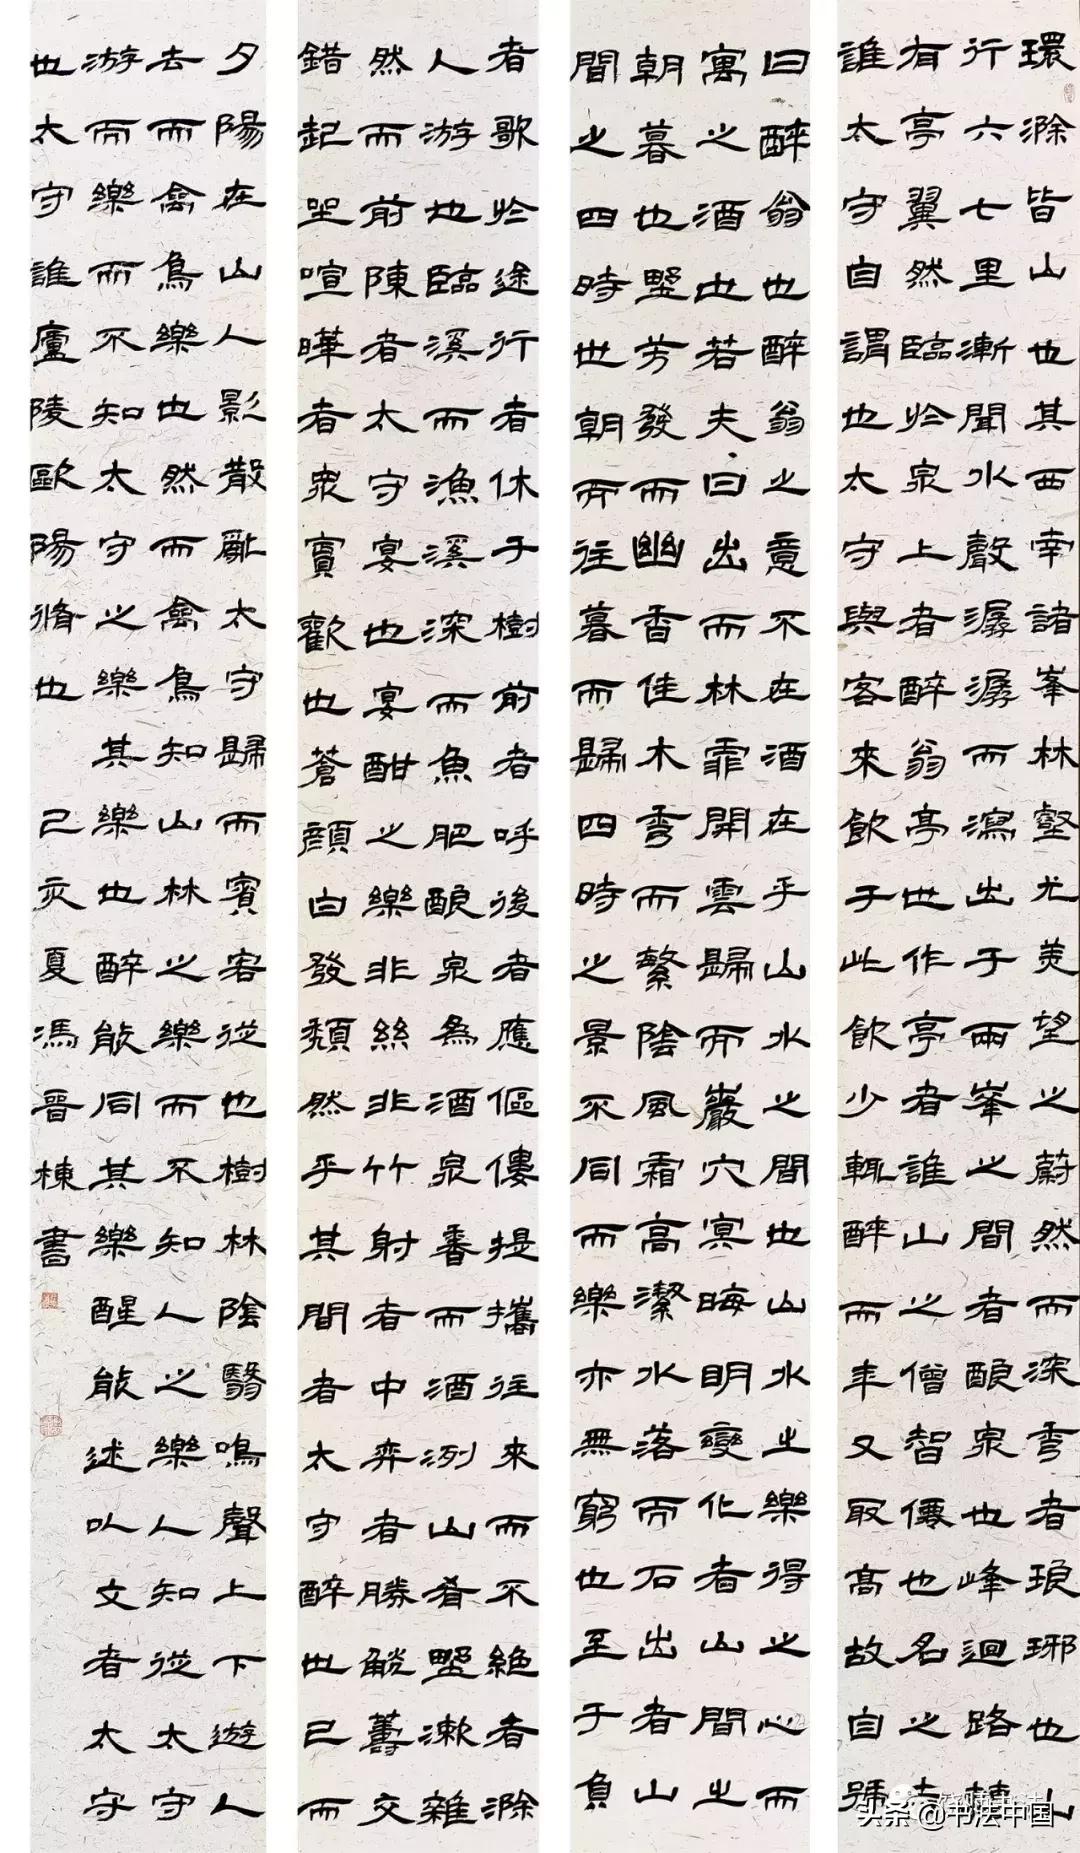 環滁皆山也其西南諸峯林壑尤美望之蔚然而深秀者琅琊也山
行六七里漸聞水聲潺潺而瀉出于兩峯之間者釀泉也峰迴路轉
有亭翼然臨於泉上者醉翁亭也作亭者誰山之僧智僊也名之者
誰太守自謂也太守與客來飲于此飲少輒醉而年又最高故自號
曰醉翁也醉翁之意不在酒在乎山水之間也山水之樂得之心而
寓之酒也若夫日出而林霏開雲歸而巖穴冥晦明變化者山間之
朝暮也野芳發而幽香佳木秀而繁陰風霜高潔水落而石出者山
間之四時也朝而往暮而歸四時之景不同而樂亦無窮也至于負
者歌於途行者休于樹前者呼後者應傴僂提攜往來而不絕者滁
人游也臨溪而漁溪深而魚肥釀泉為酒泉香而酒洌山肴野蔌雜
然而前陳者太守宴也宴酣之樂非絲非竹射者中弈者勝觥籌交
錯起坐喧曄者眾賓歡也蒼顏白發頹然乎其間者太守醉也已而
夕陽在山人影散亂太守歸而賓客從也樹林陰翳鳴聲上下遊人
去而禽鳥樂也然而禽鳥知山林之樂而不知人之樂人知從太守
游而樂而不知太守之樂其樂也醉能同其樂醒能述以文者太守
也太守誰廬陵歐陽脩也 己亥夏馮晉棟書
头条 @书法中国